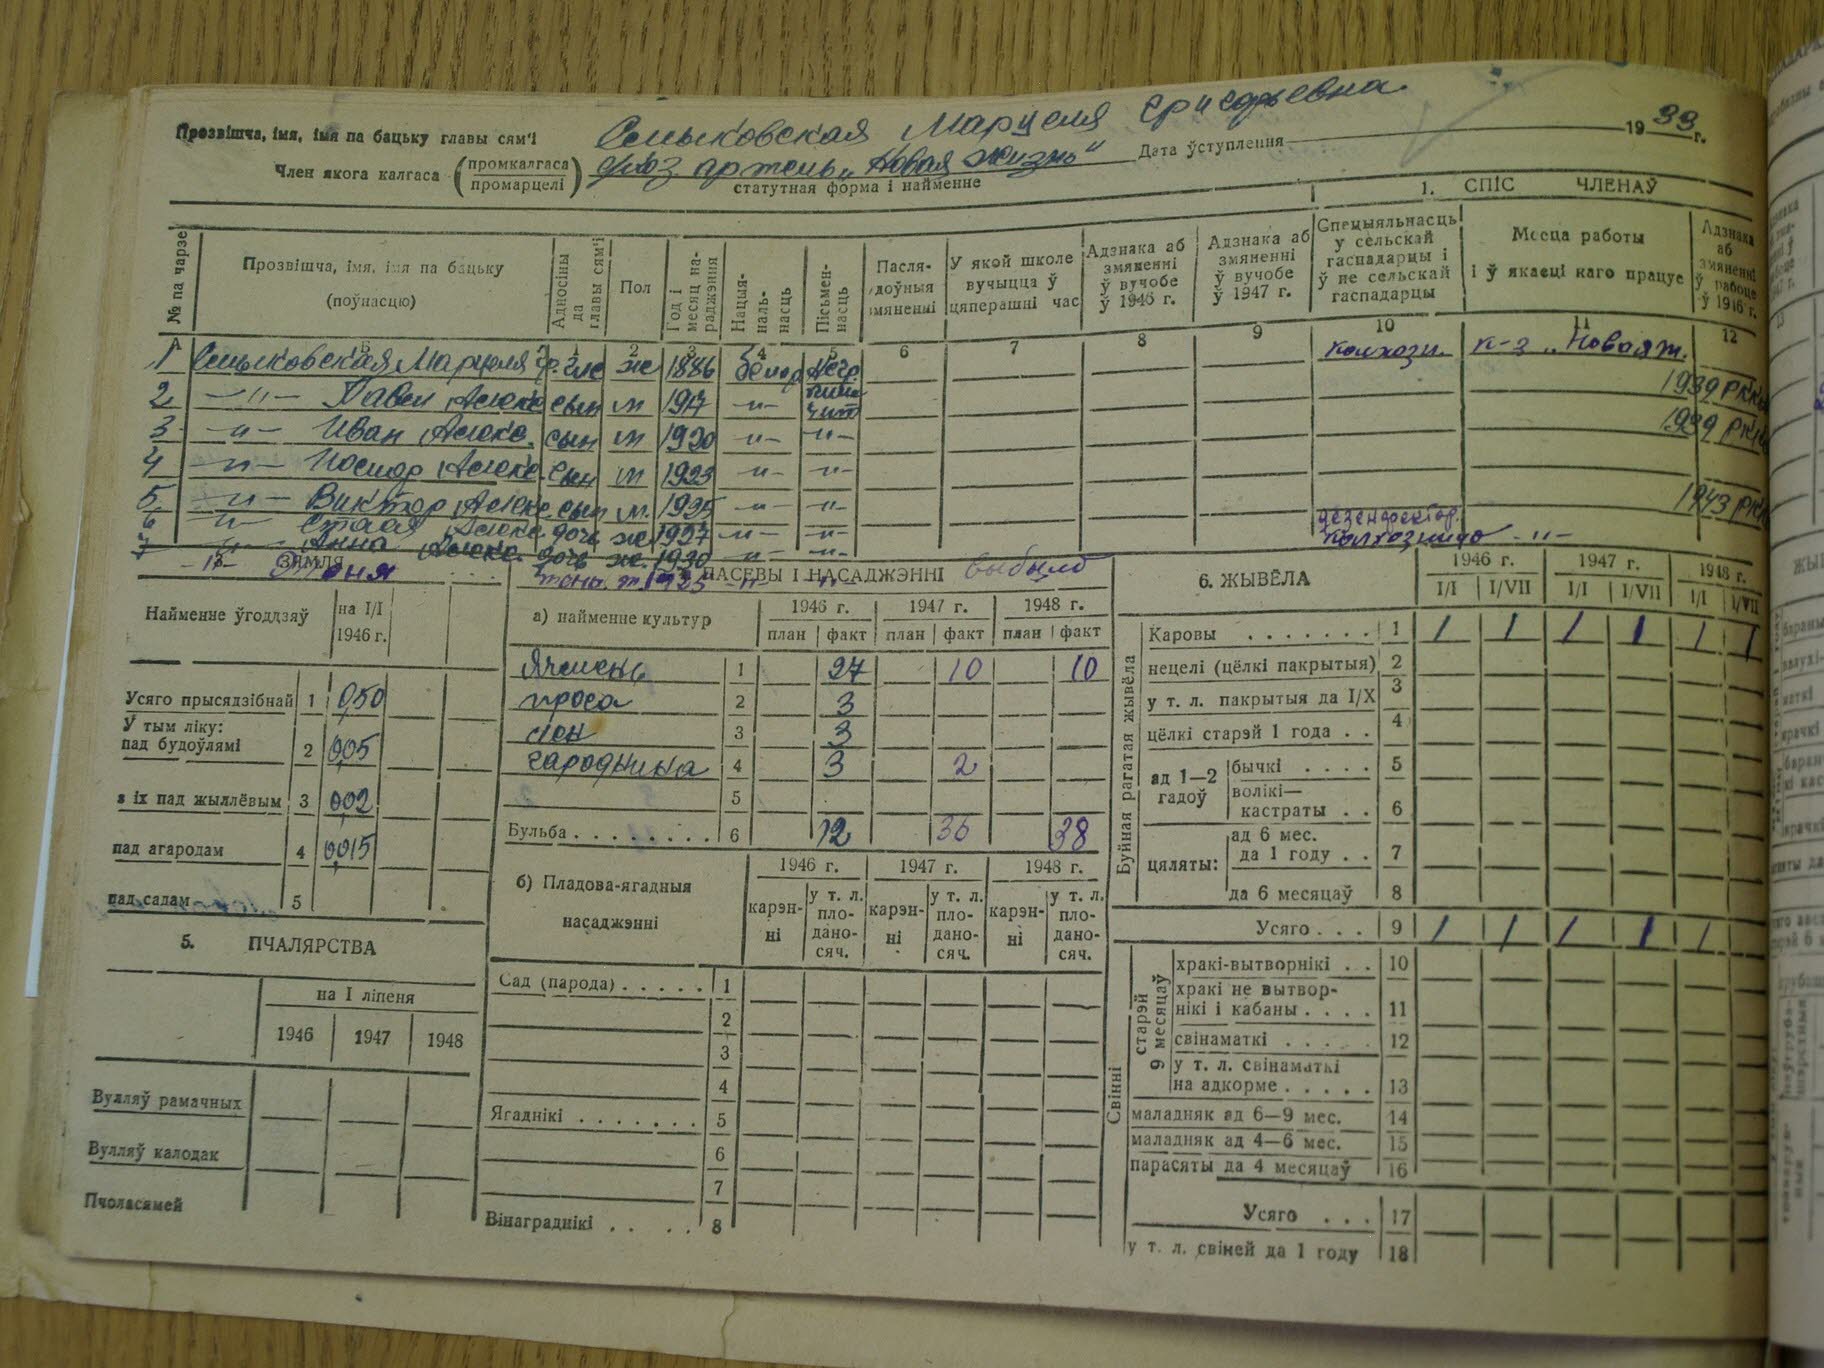 Прозвішча, імя, імя па бацьку главы сям'і Марцеля
Член якога калгаса (промкалгаса / промарцелі) артель „Новая жизнь"
Дата ўступлення 19 33 г.
статутная форма і найменне
1. СПІС ЧЛЕНАЎ
№ па чарзе | Прозвішча, імя, імя па бацьку (поўнасцю) | Адносіны да главы сям'і | Пол | Год і месяц нараджэння | Нацыянальнасць | Пісьменнасць | Паслядоўныя змяненні | У якой школе вучыцца ў цяперашні час | Адзнака аб змяненні ў вучобе ў 1946 г. | Адзнака аб змяненні ў вучобе ў 1947 г. | Спецыяльнасць у сельскай гаспадарцы і ў не сельскай гаспадарцы | Месца работы і ў якасці каго працуе | Адзнака аб змяненні ў рабоце ў 1946 г.
А Б 1 2 3 4 5 6 7 8 9 10 11 12
1 Марцеля ж 1886 белор негр. колхозн. к-з „Новая ж.
2 -"- Павел Алекс. сын м 1917 -"- 1939 РКК
3 -"- Иван Алекс. сын м 1920 -"- -"- 1939 РКК
4 -"- Алекс. сын м 1923 -"- -"-
5 -"- Виктор Алекс. сын м. 1925 -"- -"- 1943 РКК
6 -"- Алекс. дочь ж 1927 -"- -"-
7 -"- Анна Алекс. дочь ж. 1930 -"- -"- -"-
-"- жена выбыла
ЗЯМЛЯ
Найменне ўгоддзяў | на I/I 1946 г.
Усяго прысядзібнай 1 0,50
У тым ліку:
пад будоўлямі 2 0,05
з іх пад жыллёвым 3 0,02
пад агародам 4 0,015
пад садам 5
5. ПЧАЛЯРСТВА
на I ліпеня
1946 1947 1948
Вулляў рамачных
Вулляў калодак
Пчоласямей
ПАСЕВЫ І НАСАДЖЭННІ
а) найменне культур | 1946 г. | 1947 г. | 1948 г.
план факт план факт план факт
Ячмень 1 27 10 10
проса 2 3
лён 3 3
гародніна 4 3 2
5
Бульба . . . . . . . . 6 12 36 38
б) Пладова-ягадныя насаджэнні | 1946 г. | 1947 г. | 1948 г.
карэнні | у т. л. плоданосяч. | карэнні | у т. л. плоданосяч. | карэнні | у т. л. плоданосяч.
Сад (парода) . . . . . 1
2
3
4
Ягаднікі . . . . . . . 5
6
7
Вінаграднікі . . . . 8
6. ЖЫВЁЛА
1946 г. 1947 г. 1948 г.
I/I I/VII I/I I/VII I/I I/VII
Буйная рагатая жывёла
Каровы . . . . . . . 1 1 1 1 1 1 1
нецелі (цёлкі пакрытыя) 2
у т. л. пакрытыя да I/X 3
цёлкі старэй 1 года . . 4
ад 1—2 гадоў
бычкі . . . . 5
волікі—кастраты . . 6
цяляты:
ад 6 мес. да 1 году . . 7
да 6 месяцаў 8
Усяго . . . 9 1 1 1 1 1
Свінні
старэй 9 месяцаў
хракі-вытворнікі . . 10
хракі не вытворнікі і кабаны . . . . 11
свінаматкі . . . . . 12
у т. л. свінаматкі на адкорме . . . . . 13
маладняк ад 6—9 мес. 14
маладняк ад 4—6 мес. 15
парасяты да 4 месяцаў 16
Усяго . . . 17
у т. л. свіней да 1 году 18